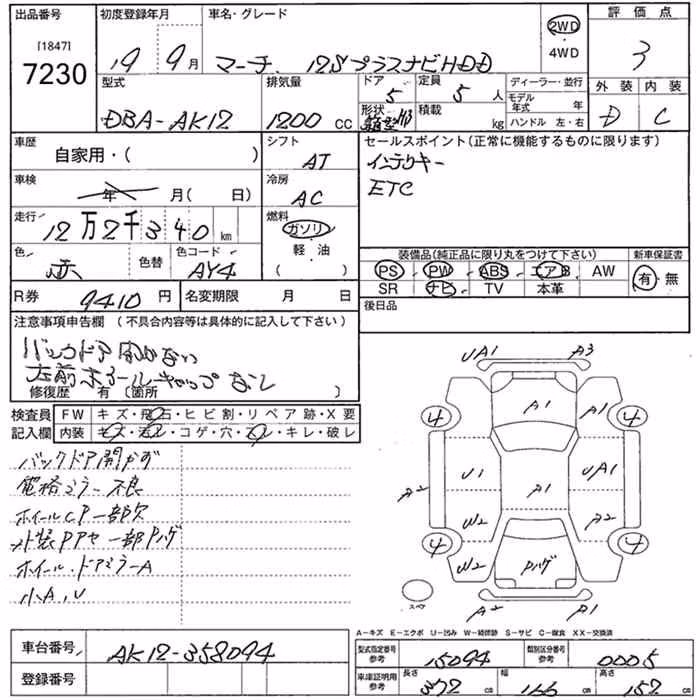 出品番号 初度登録年月 車名・グレード 評価点
[1847] 2WD
7230 19 9月 マーチ 12SプラスナビHDD ・4WD 3
型式 排気量 ドア 定員 ディーラー・並行 外装 内装
5 5人 モデル年式 年
DBA-AK12 1200cc 形状 箱型HB 積載 kg ハンドル 左・右 D C
車歴 シフト セールスポイント(正常に機能するものに限ります)
自家用・( ) AT インテリキー
車検 冷房 ETC
年 月( 日) AC
走行 燃料
12万2千340km ガソリン
色 色替 色コード 軽・油 装備品(純正品に限り丸をつけて下さい) 新車保証書
赤 AY4 ( ) PS PW ABS エアB AW 有・無
SR ナビ TV 本革
R券 9410円 名変期限 月 日 後日品
注意事項申告欄 (不具合内容等は具体的に記入して下さい)
バックドア開かない
左前ホイールキャップなし
修復歴 有 (箇所 )
検査員 FW キズ・飛石・ヒビ割・リペア跡・X要
記入欄 内装 キズ・汚レ・コゲ・穴・スレ・キレ・破レ
バックドア開かず
電格ミラー不良
ホイールCP一部欠
外装Pアセ 一部Pハゲ
ホイール・ドアミラーA
小A,U
UA1 A3
A1
4 A1 4
A2 U1 A1 UA1
W2 A2
4 W2 Pハゲ 4
スペア A2 P1 P1
A-キズ E-エクボ U-凹み W-補修跡 S-サビ C-腐食 XX-交換済
車台番号 AK12-358094
登録番号
型式指定番号 参考 15094 類別区分番号 参考 0005
車庫証明用 参考 長さ 377cm 幅 166cm 高さ 152cm